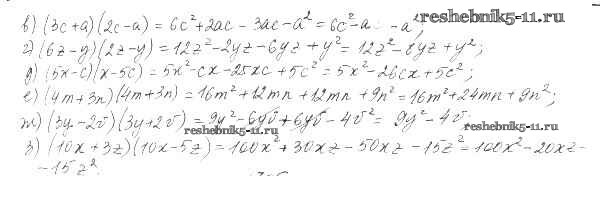 в) (3c+a)(2c-a) = 6c²+2ac - 3ac - a² = 6c² - a - a²;
reshebnik5-11.ru
г) (6z-y)(2z-y) = 12z² - 2yz - 6yz + y² = 12z² - 8yz + y²;
д) (5x-c)(x-5c) = 5x² - cx - 25xc + 5c² = 5x² - 26cx + 5c²;
е) (4m+3n)(4m+3n) = 16m² + 12mn + 12mn + 9n² = 16m² + 24mn + 9n²;
ж) (3y-2v)(3y+2v) = 9y² - 6yv + 6yv - 4v² = 9y² - 4v
reshebnik5-11.ru
reshebnik5-11.ru
з) (10x+3z)(10x-5z) = 100x² + 30xz - 50xz - 15z² = 100x² - 20xz -
- 15z².